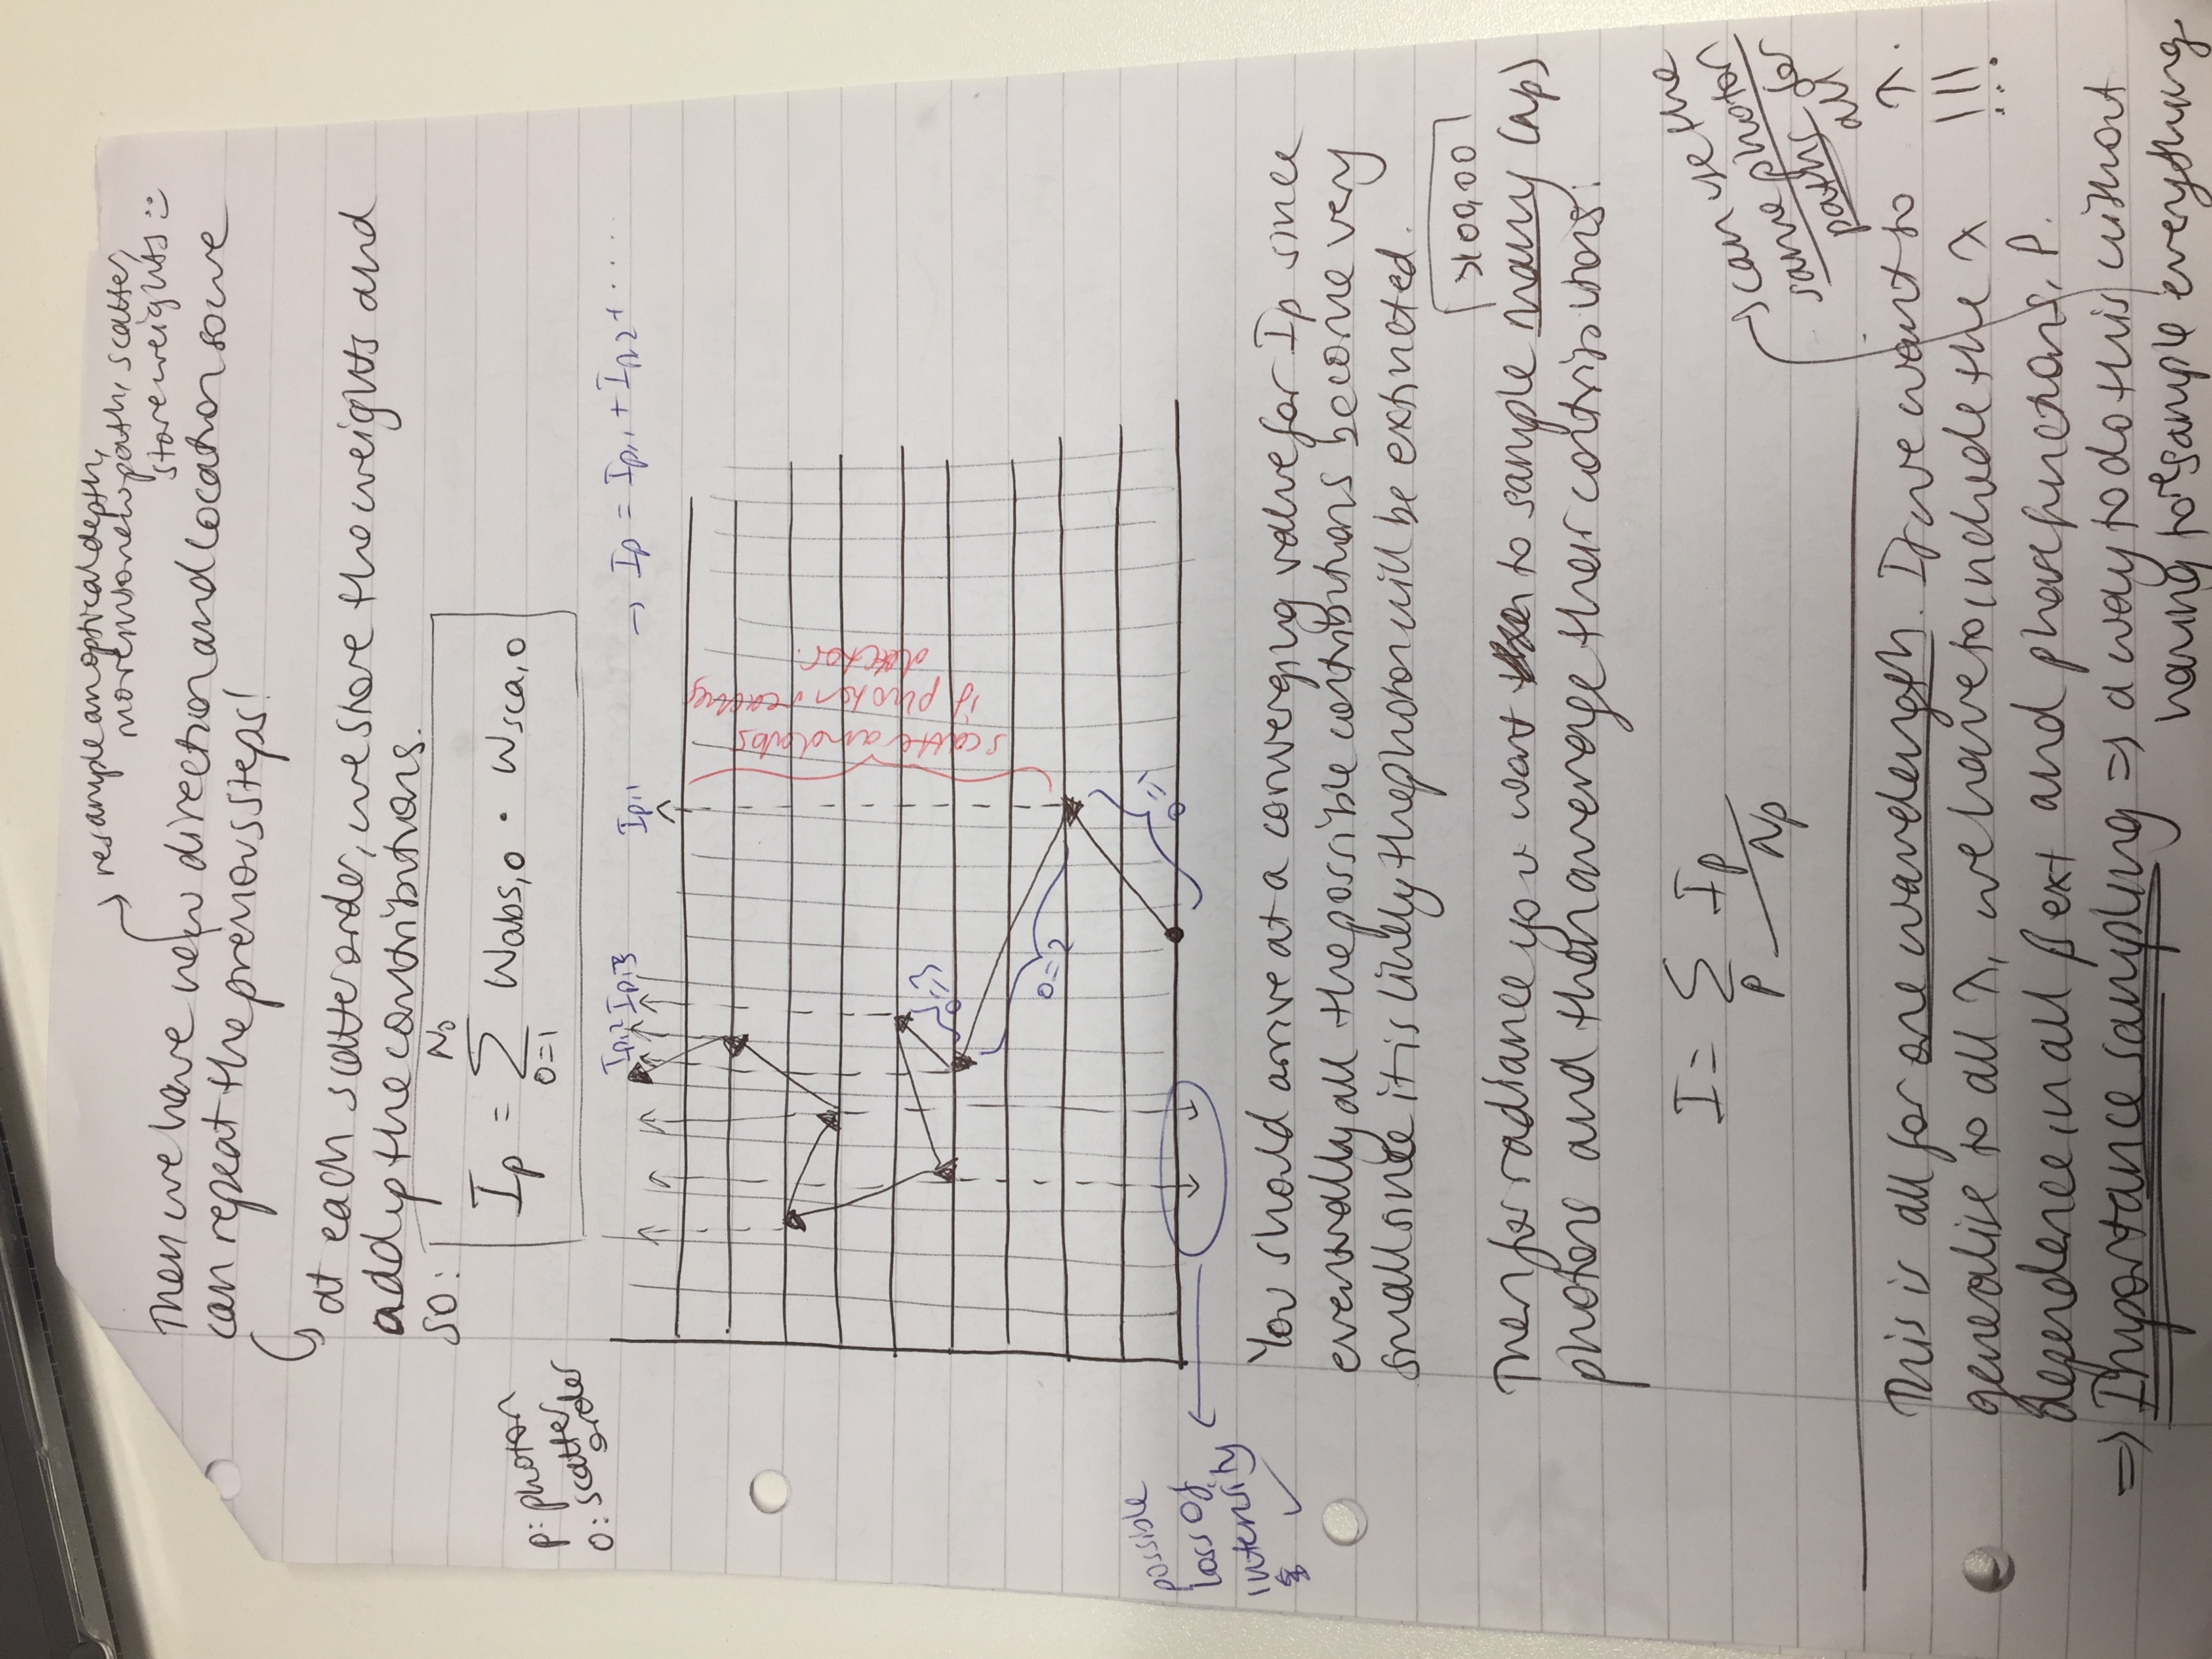 → resample an optical depth,
move into new path, scatter,
store weights :)
Then we have new direction and location so we
can repeat the previous steps!
↳ at each scatter order, we store the weights and
add up the contributions.
SO:
I_p = Σ_{o=1}^{N_o} W_{abs,o} · W_{sca,o}
p: photon
o: scatter
order
I_{p,2} I_{p,3} I_{p,1} → I_p = I_{p,1} + I_{p,2} + ....
scatter and abs
if photon reaches
detector.
o=3
o=2
o=1
possible
loss of
intensity
✓
You should arrive at a converging value for I_p since
eventually all the possible contributions become very
small since it is likely the photon will be extincted.
>100,00
Then for radiance you want to sample many (N_p)
photons and then average their contributions:
I = Σ_p I_p / N_p
→ can use the
same photon
paths for
all
λ.
!!!
This is all for one wavelength. If we want to
generalise to all λ, we have to include the λ
dependence in all β ext and phase functions, P.
⇒ Importance sampling ⇒ a way to do this without
having to resample everything